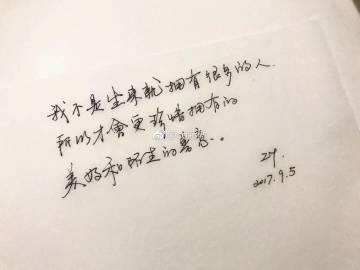 我不是生来就拥有很多的人.
所以才會更珍惜拥有的
美好和陌生的善意..
ZY.
2017.9.5